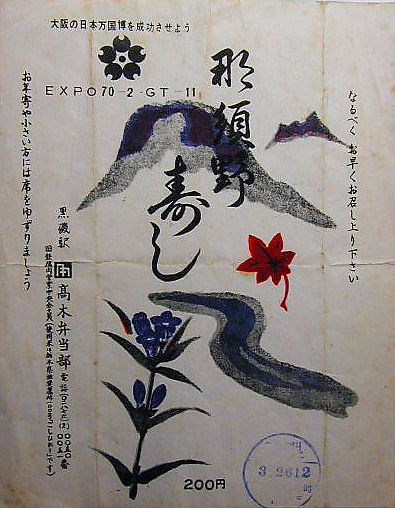 大阪の日本万国博を成功させよう
EXPO70-2-GT-11
那須野
寿し
なるべくお早くお召し上り下さい
お年寄や小さい方には席をゆずりましょう
黒磯駅
高木弁当部
200円
3.2612